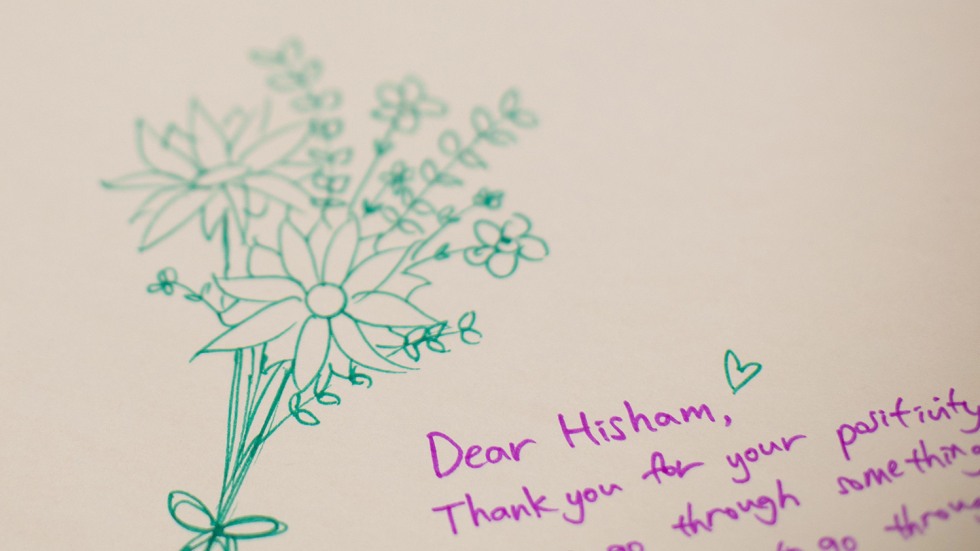 Dear Hisham,
Thank you for your positivity
go through something
to go through